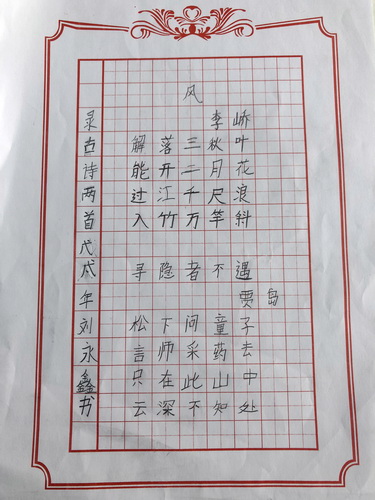 风
李峤
解落三秋叶
能开二月花
过江千尺浪
入竹万竿斜
寻隐者不遇
贾岛
松下问童子
言师采药去
只在此山中
云深不知处
录古诗两首戊戌年刘永鑫书